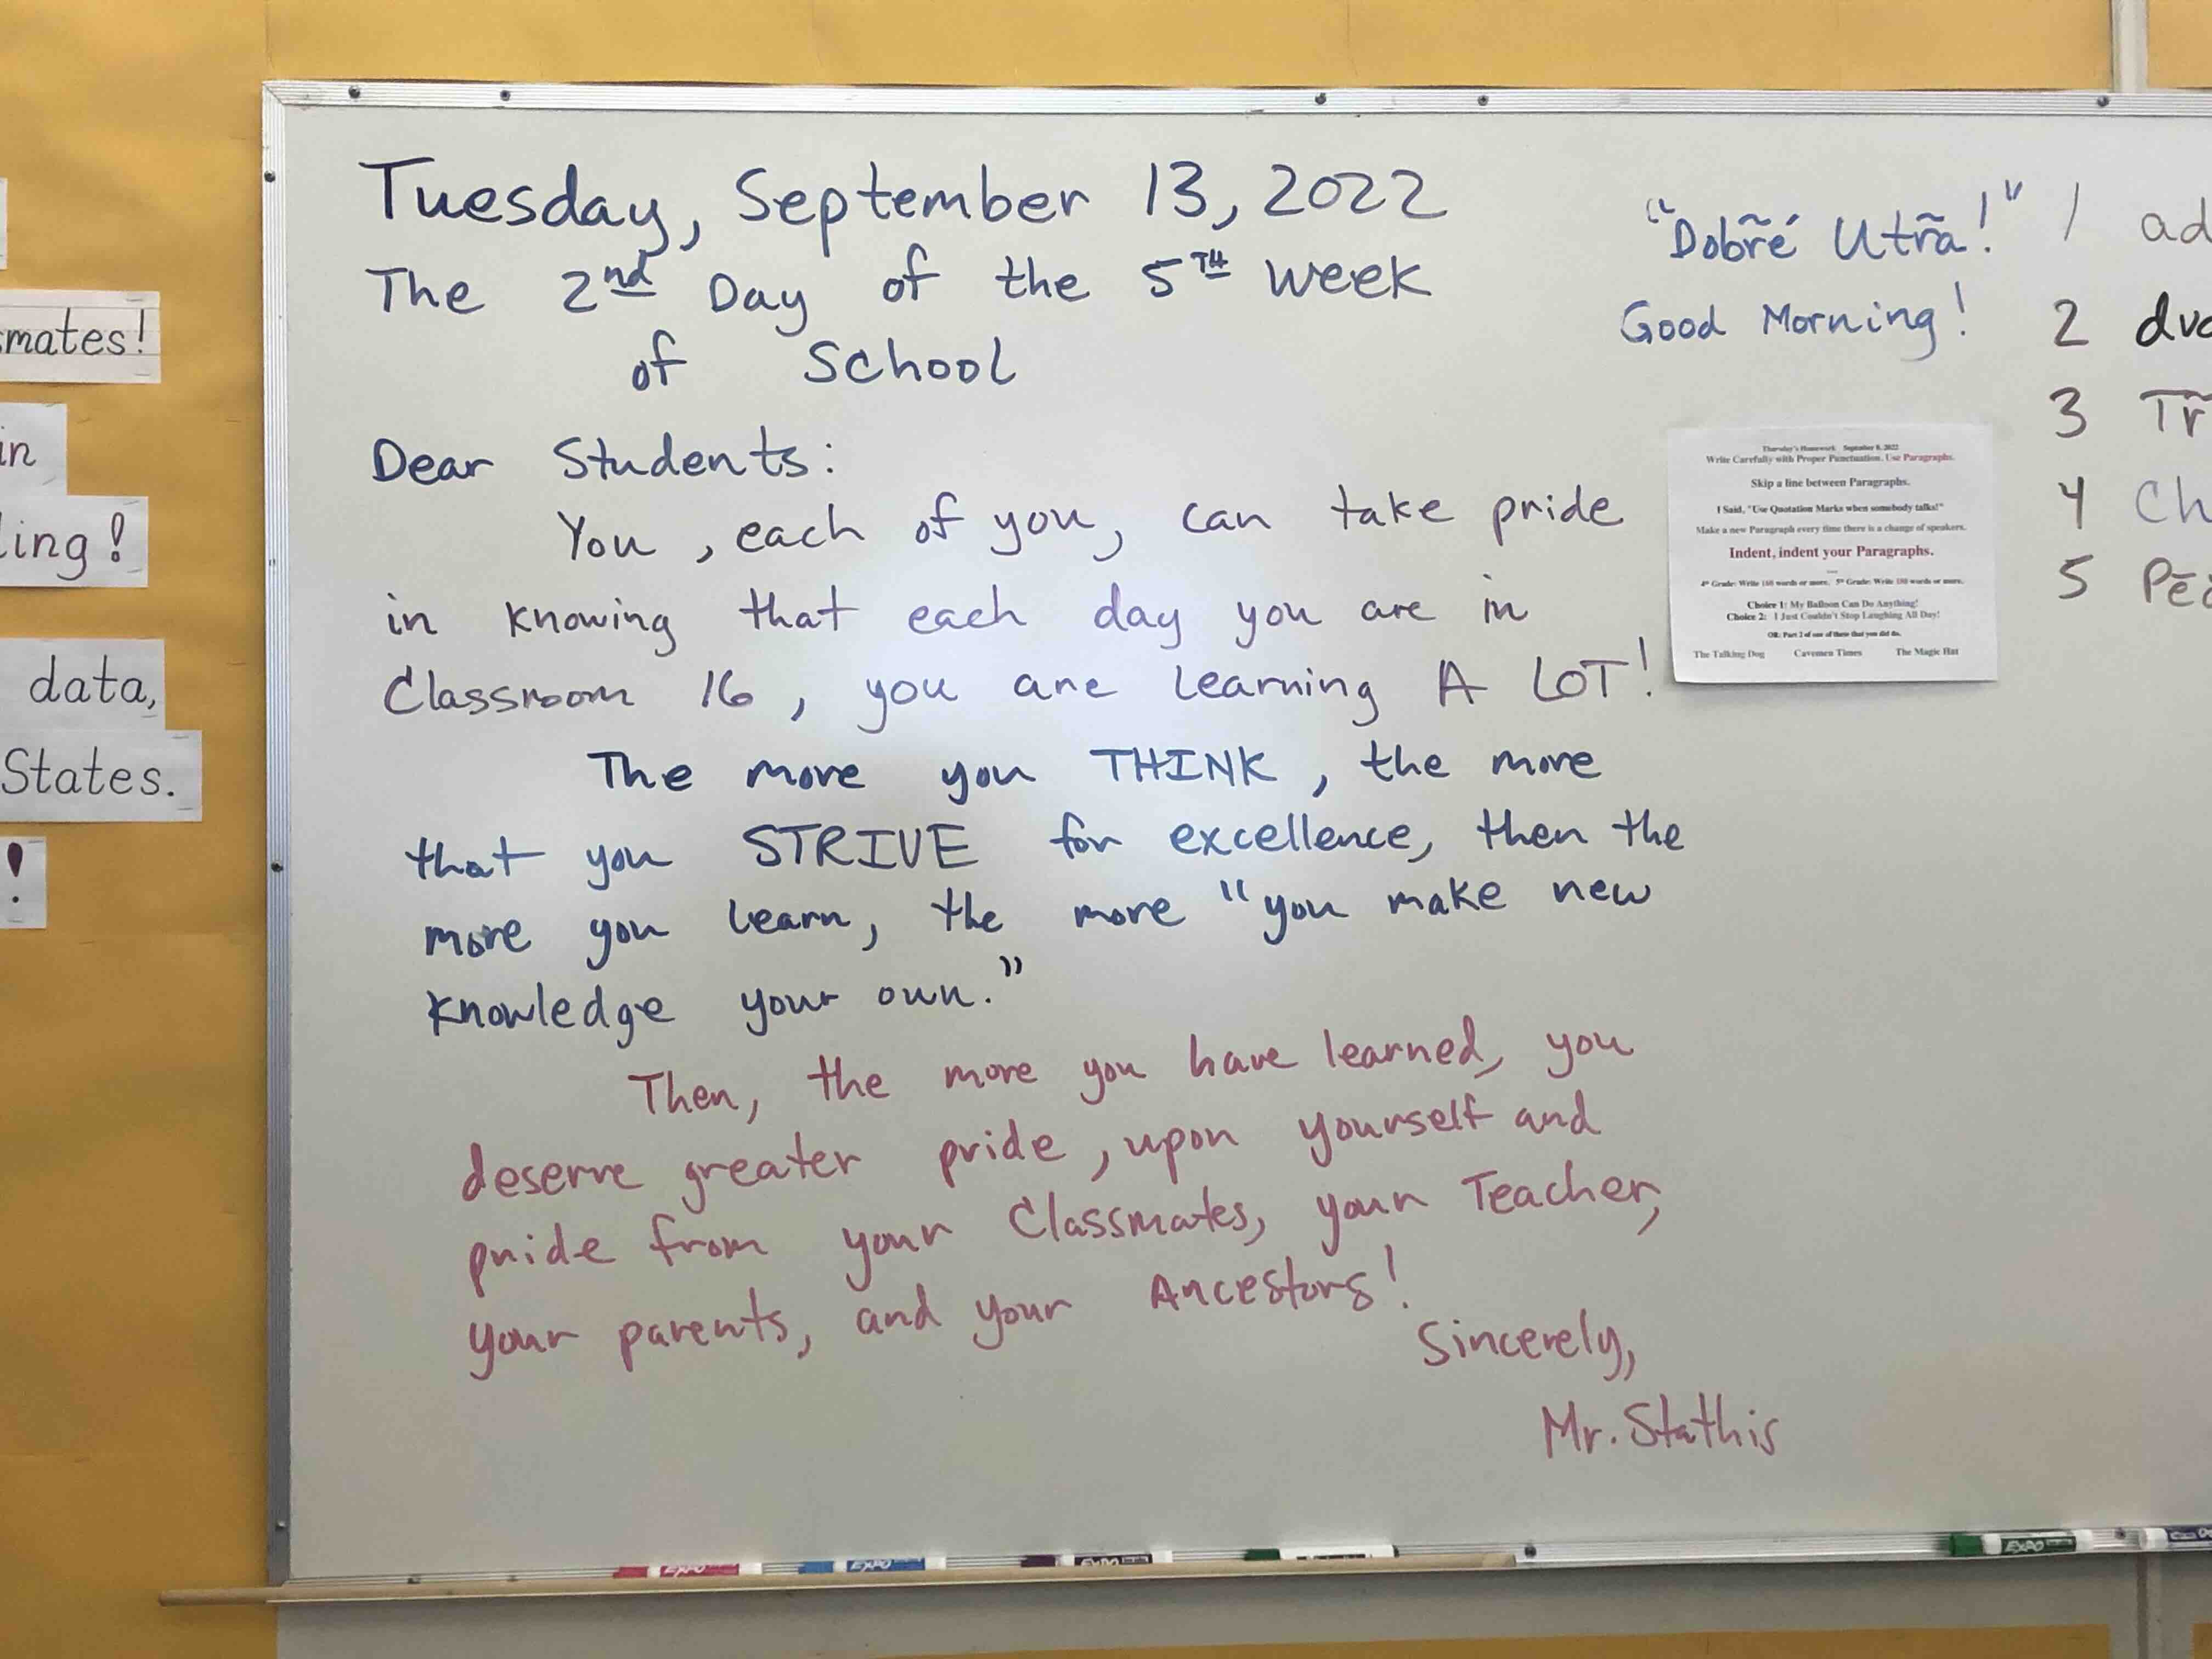 Tuesday, September 13, 2022
The 2nd Day of the 5TH Week
of School
Dear Students:
You, each of you, can take pride
in knowing that each day you are in
Classroom 16, you are learning A LOT!
The more you THINK, the more
that you STRIVE for excellence, then the
more you learn, the more "you make new
knowledge your own."
Then, the more you have learned, you
deserve greater pride, upon yourself and
pride from your Classmates, your Teacher,
your parents, and your Ancestors!
Sincerely,
Mr. Stathis
"Dobr̃é Utr̃a!"
Good Morning!
1 ad
2 dva
3 Tr̃
4 Ch
5 Pē
Thursday's Homework September 8, 2022
Write Carefully with Proper Punctuation. Use Paragraphs.
Skip a line between Paragraphs.
I Said, "Use Quotation Marks when somebody talks!"
Make a new Paragraph every time there is a change of speakers.
Indent, indent your Paragraphs.
4th Grade: Write 160 words or more. 5th Grade: Write 180 words or more.
Choice 1: My Balloon Can Do Anything!
Choice 2: I Just Couldn't Stop Laughing All Day!
OR: Part 2 of one of these that you did do.
The Talking Dog Cavemen Times The Magic Hat
mates!
in
ling!
data,
States.
!
EXPO
EXPO
EXPO
EXPO